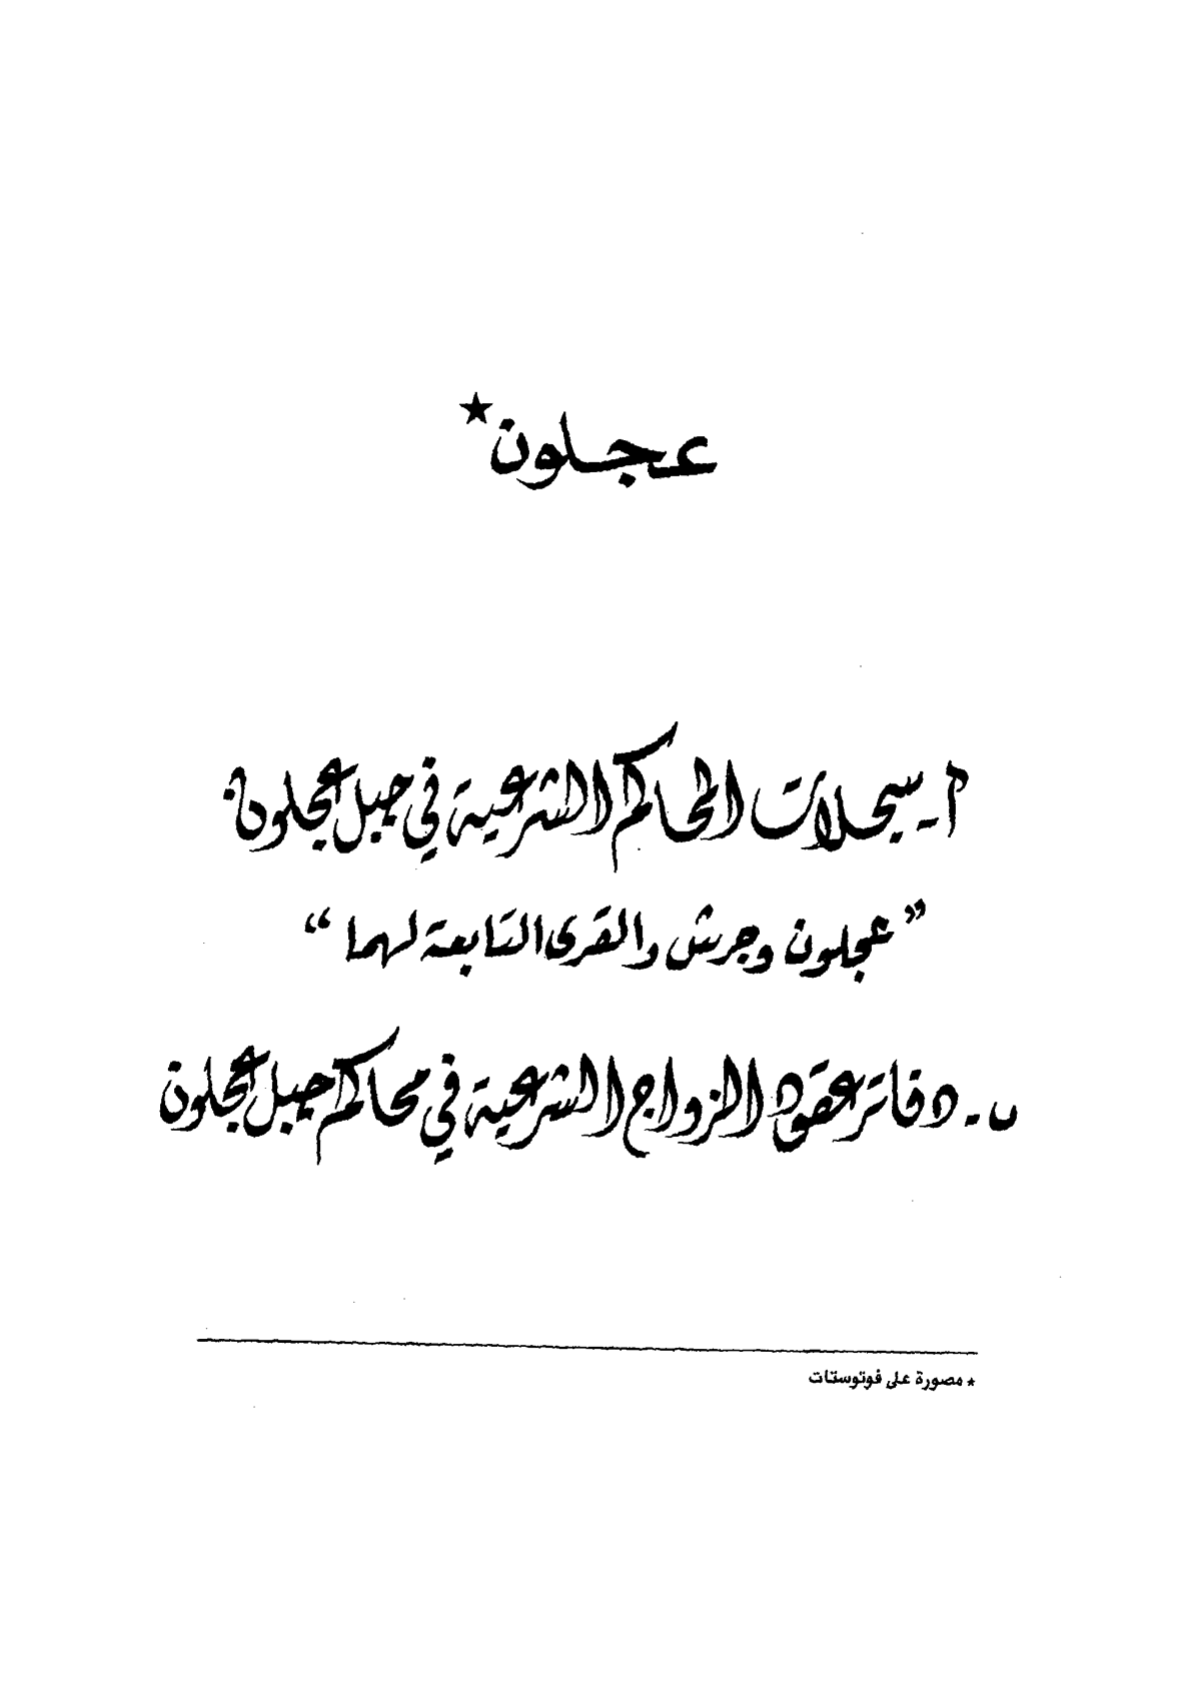 عجلون*
أ - سجلات المحاكم الشرعية في جبل عجلون:
"عجلون وجرش والقرى التابعة لهما"
ب - دفاتر عقود الزواج الشرعية في محاكم جبل عجلون
* مصورة على فوتوستات